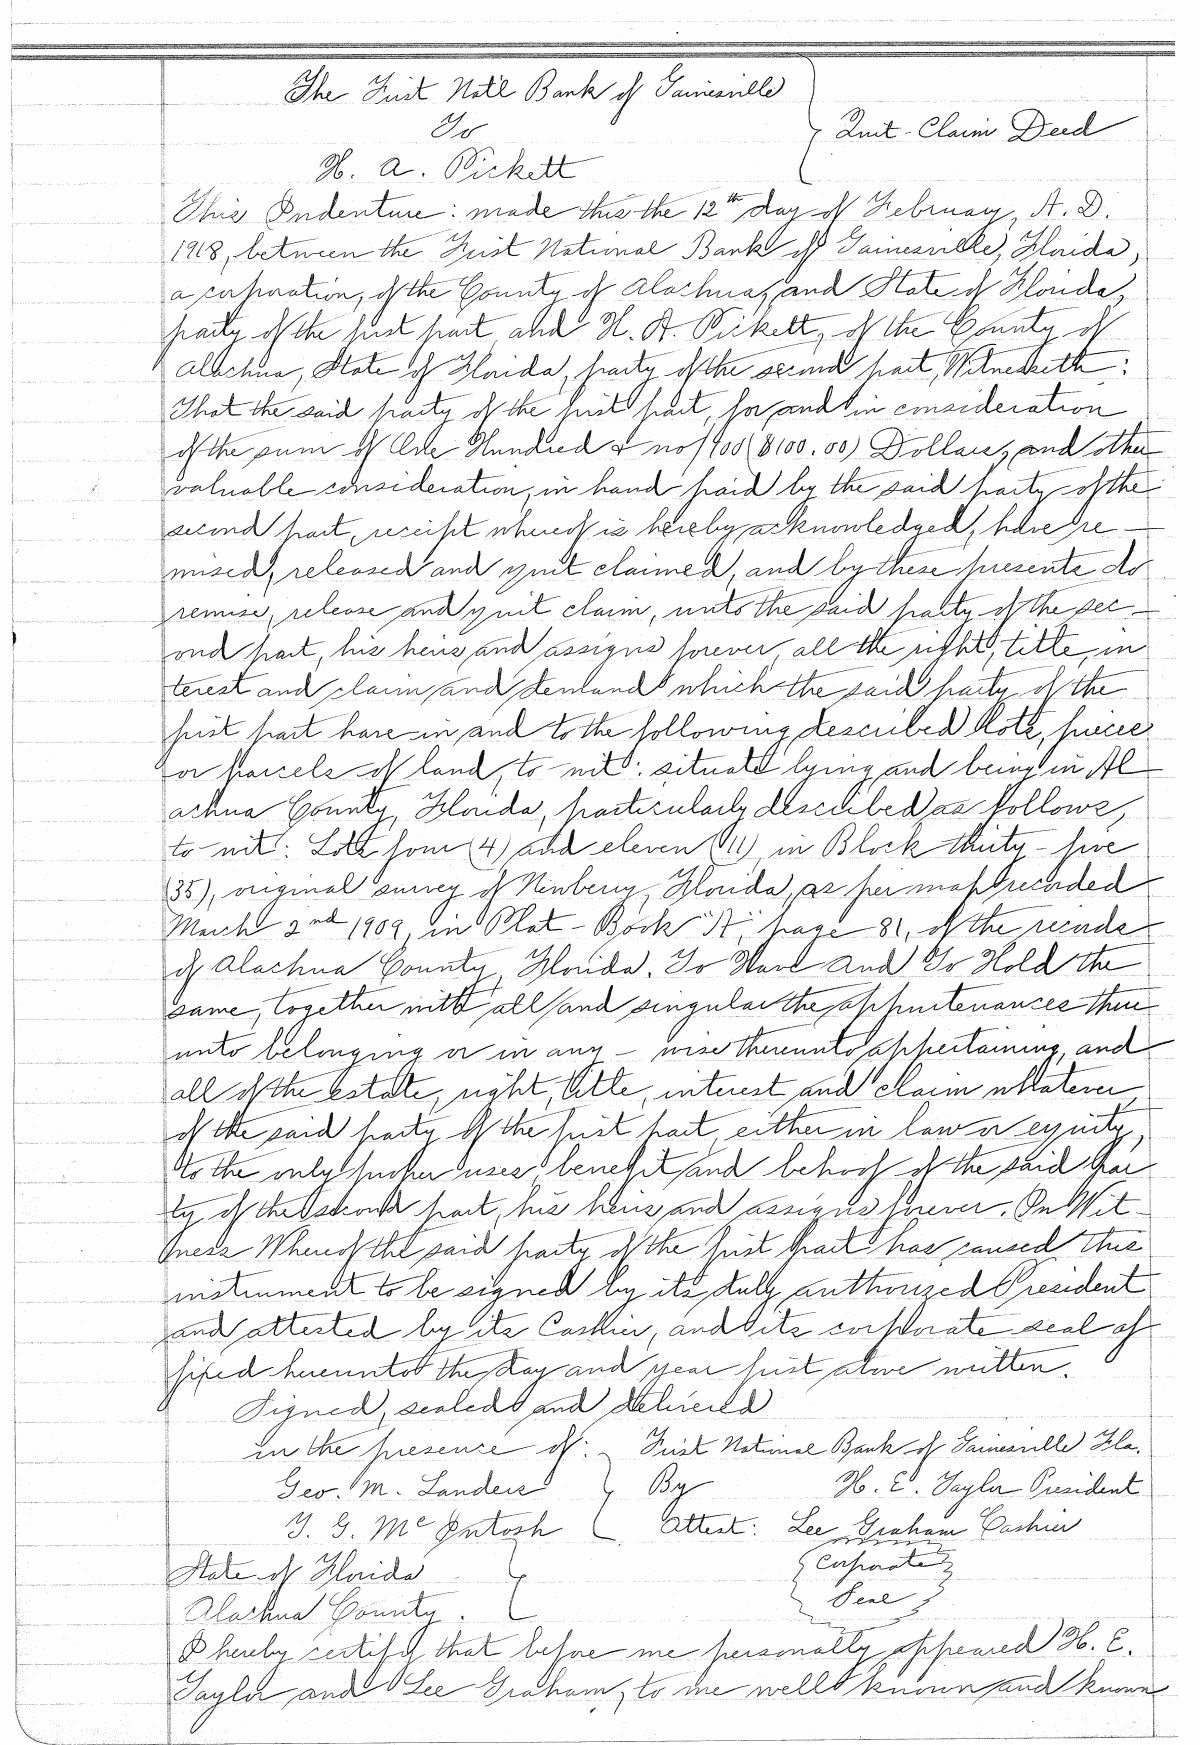 The First Nat'l Bank of Gainesville
To
Quit-Claim Deed
H. A. Pickett
This Indenture: made this the 12th day of February, A. D.
1918, between the First National Bank of Gainesville, Florida,
a corporation, of the County of Alachua, and State of Florida,
party of the first part and H. A. Pickett, of the County of
Alachua, State of Florida, party of the second part, Witnesseth:
That the said party of the first part, for and in consideration
of the sum of One Hundred & no/100 ($100.00) Dollars, and other
valuable consideration, in hand paid by the said party of the
second part, receipt whereof is hereby acknowledged, have re-
mised, released and quit claimed, and by these presents do
remise, release and quit claim, unto the said party of the sec-
ond part, his heirs and assigns forever, all the right, title, in
terest and claim and demand which the said party of the
first part have in and to the following described lots, pieces
or parcels of land, to wit: situate lying and being in Al-
achua County, Florida, particularly described as follows,
to wit: Lots four (4) and eleven (11) in Block thirty-five
(35), original survey of Newberry, Florida, as per map recorded
March 2nd 1909, in Plat-Book "A", page 81, of the records
of Alachua County, Florida. To Have And To Hold the
same, together with all and singular the appurtenances there
unto belonging or in any-wise thereunto appertaining, and
all of the estate, right, title, interest and claim whatever
of the said party of the first part, either in law or equity,
to the only proper uses, benefit and behoof of the said par
ty of the second part, his heirs and assigns forever. In Wit-
ness Whereof the said party of the first part has caused this
instrument to be signed by its duly authorized President
and attested by its Cashier, and its corporate seal af
fixed hereunto the day and year first above written.
Signed, sealed and delivered
in the presence of: First National Bank of Gainesville Fla.
Geo. M. Landers By H. E. Taylor President
T. G. McIntosh Attest: Lee Graham Cashier
State of Florida Corporate
Alachua County. Seal
I hereby certify that before me personally appeared H. E.
Taylor and Lee Graham, to me well known and known